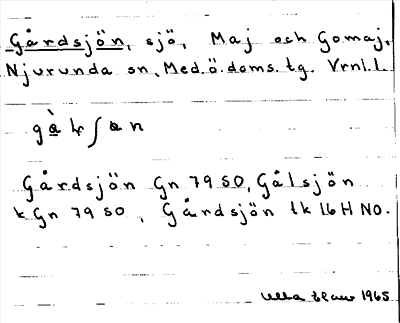 Gårdsjön, sjö, Maj och Gomaj,
Njurunda sn, Med.ö.doms.tg. Vrnl.l.
Gårdsjön Gn 79 SO, Gålsjön
k Gn 79 SO, Gårdsjön tk 16H NO.
Ulla 1965